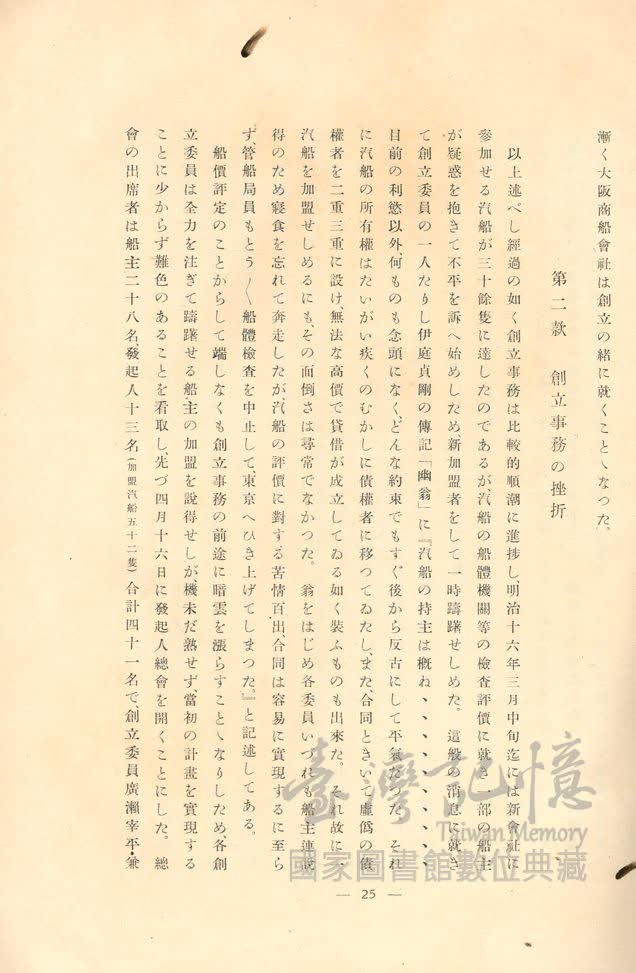 漸く大阪商船會社は創立の緒に就くことゝなつた。
第二款　創立事務の挫折
以上述べし經過の如く創立事務は比較的順潮に進捗し、明治十六年三月中旬迄には新會社に
參加せる汽船が三十餘隻に達したのであるが、汽船の船體機關等の檢査評價に就き一部の船主
が疑惑を抱きて不平を訴へ始めしため新加盟者をして一時躊躇せしめた。這般の消息に就き
て創立委員の一人たりし伊庭貞剛の傳記「幽翁」に『汽船の持主は概ね、、、、、、、、
目前の利慾以外、何ものも念頭になく、どんな約束でもすぐ後から反古にして平氣だつた。それ
に汽船の所有權はたいがい疾くのむかしに債權者に移つてゐたし、また、合同ときいて虛僞の債
權者を二重三重に設け、無法な高價で貸借が成立してゐる如く裝ふものも出來た。それ故に一
汽船を加盟せしめるにも、その面倒さは尋常でなかつた。翁をはじめ各委員いづれも船主連說
得のため寢食を忘れて奔走したが、汽船の評價に對する苦情百出、合同は容易に實現するに至ら
ず、管船局員もとう〳〵船體檢査を中止して、東京へひき上げてしまつた。』と記述してある。
船價評定のことからして端しなくも創立事務の前途に暗雲を漲らすことゝなりしため、各創
立委員は全力を注ぎて躊躇せる船主の加盟を說得せしが、機未だ熟せず、當初の計畫を實現する
ことに少からず難色のあることを看取し、先づ四月十六日に發起人總會を開くことにした。總
會の出席者は船主二十八名、發起人十三名(加盟汽船五十二隻)合計四十一名で、創立委員廣瀨宰平・兼
— 25 —
臺灣記憶
Taiwan Memory
國家圖書館數位典藏